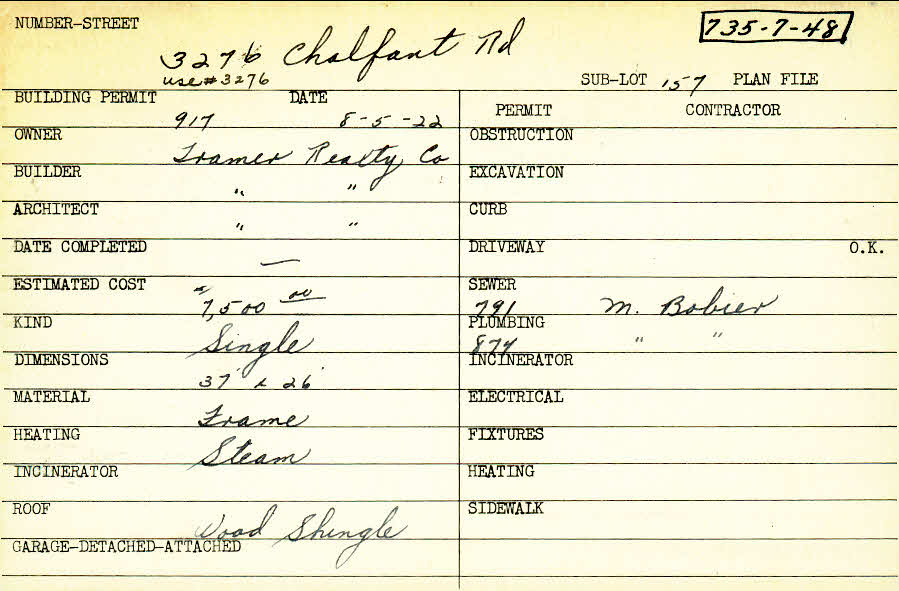 NUMBER-STREET
3276 Chalfant Rd
735-7-48
use #3276
SUB-LOT 157 PLAN FILE
BUILDING PERMIT DATE
917 8-5-22
PERMIT CONTRACTOR
OWNER
Tramer Realty Co
OBSTRUCTION
BUILDER
" "
EXCAVATION
ARCHITECT
" "
CURB
DATE COMPLETED
—
DRIVEWAY O.K.
ESTIMATED COST
7,500 00
SEWER
791 M. Bobier
KIND
Single
PLUMBING
874 " "
DIMENSIONS
37' x 26'
INCINERATOR
MATERIAL
Frame
ELECTRICAL
HEATING
Steam
FIXTURES
INCINERATOR
HEATING
ROOF
Wood Shingle
SIDEWALK
GARAGE-DETACHED-ATTACHED